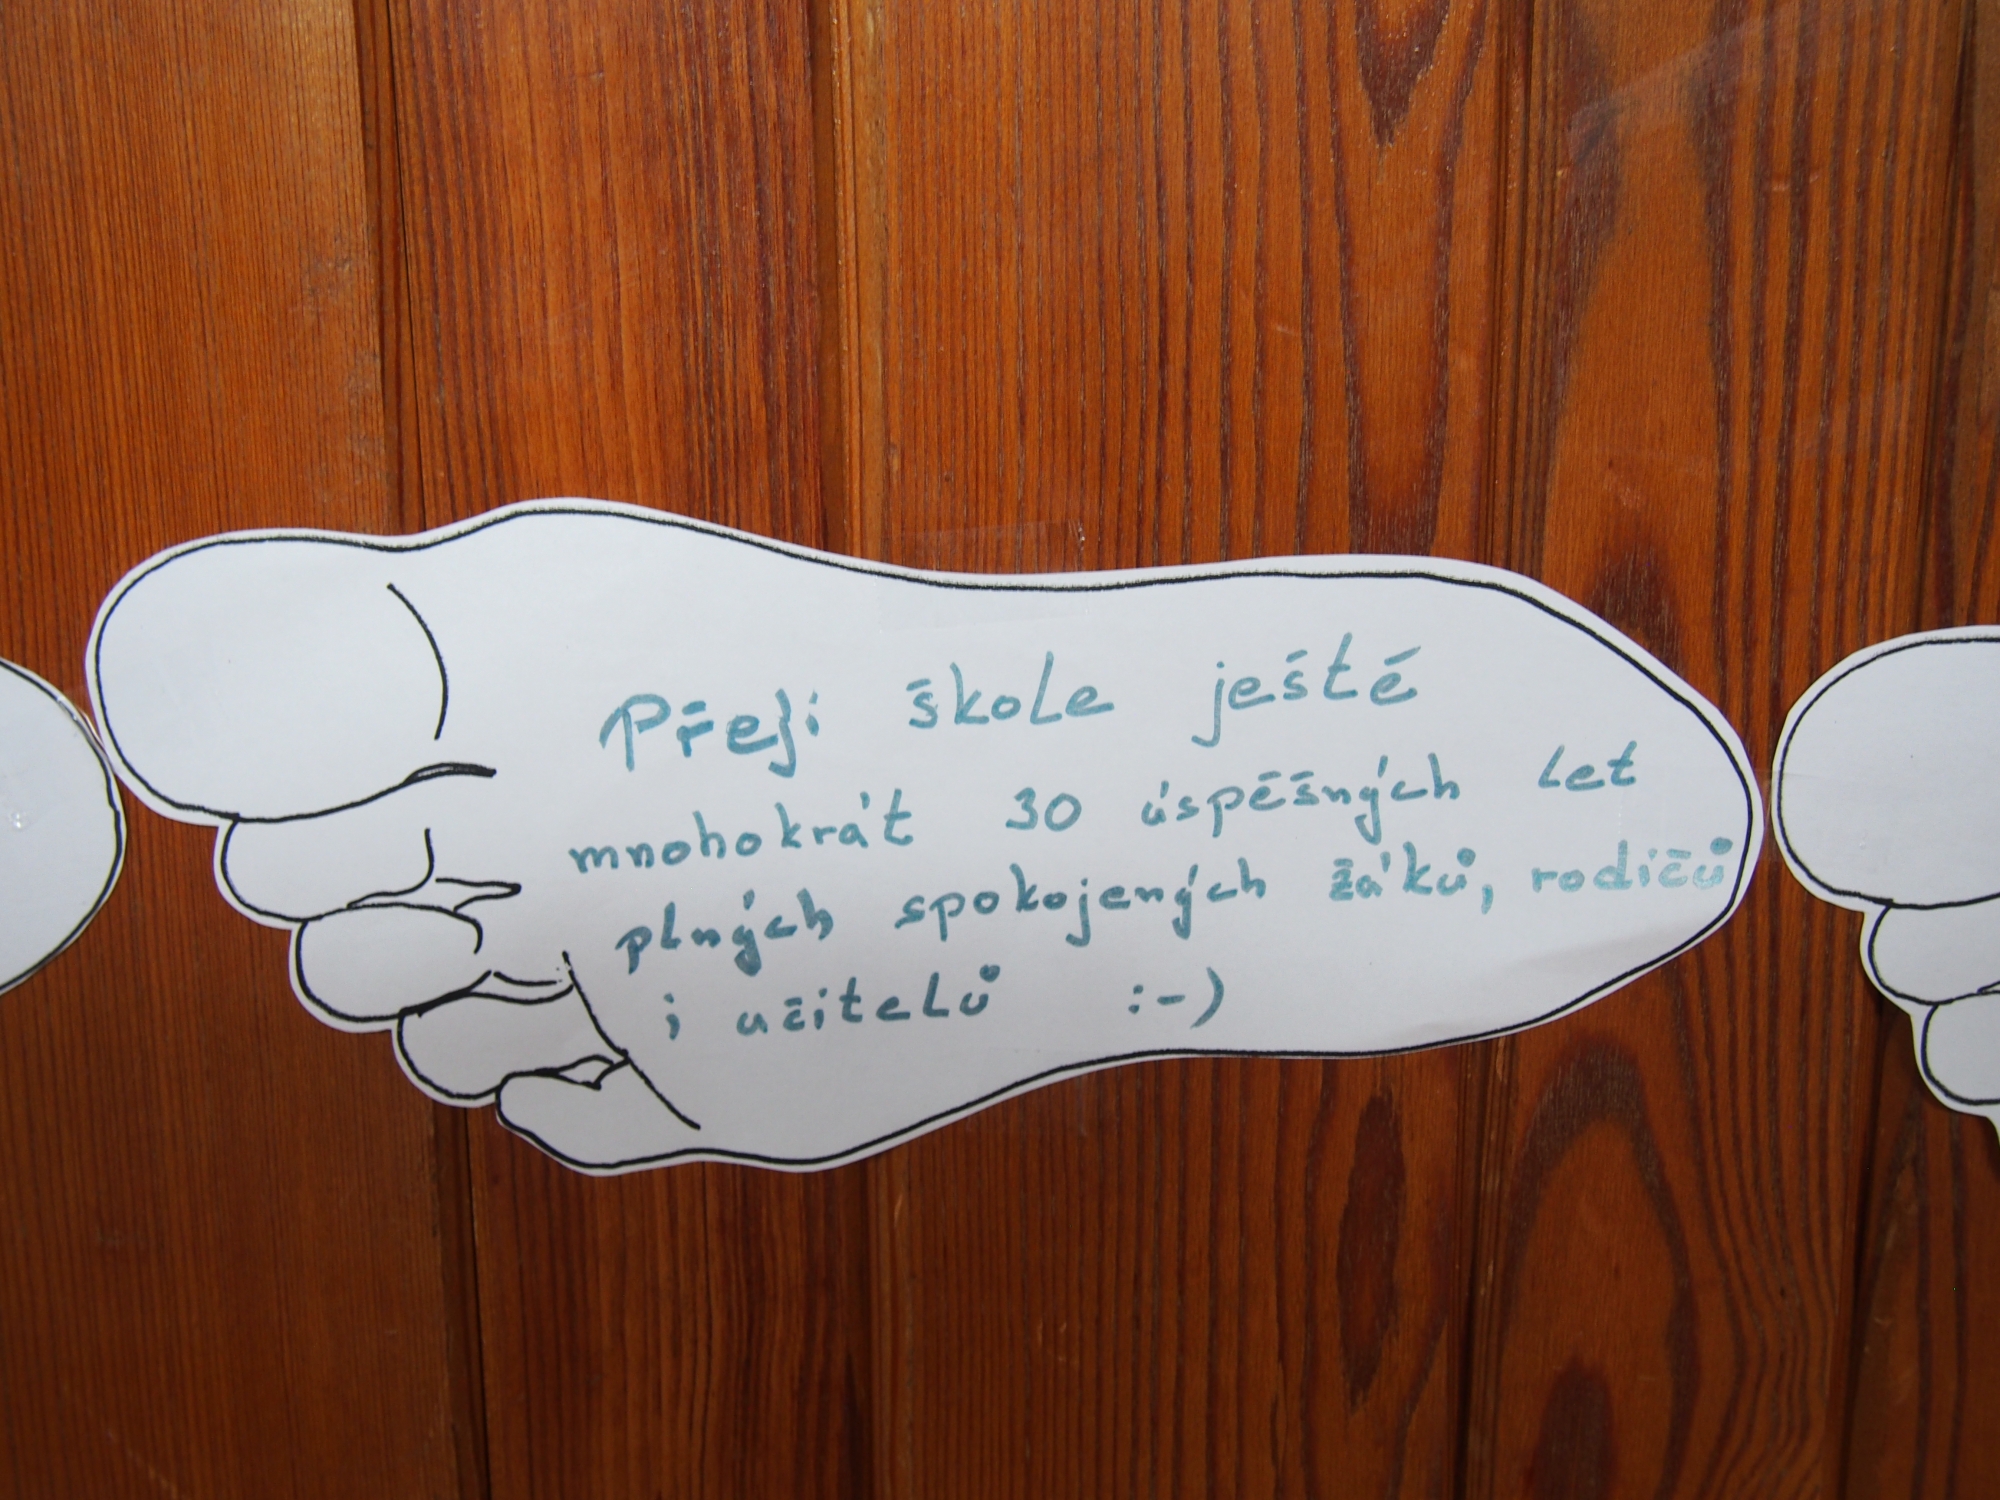 Přeji škole ještě
mnohokrát 30 úspěšných let
plných spokojených žáků, rodičů
i učitelů :-)